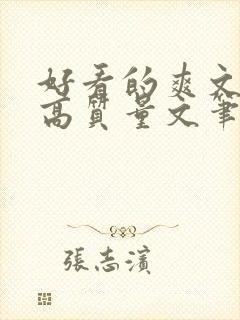 好看的爽文
高質量文筆
張志濱